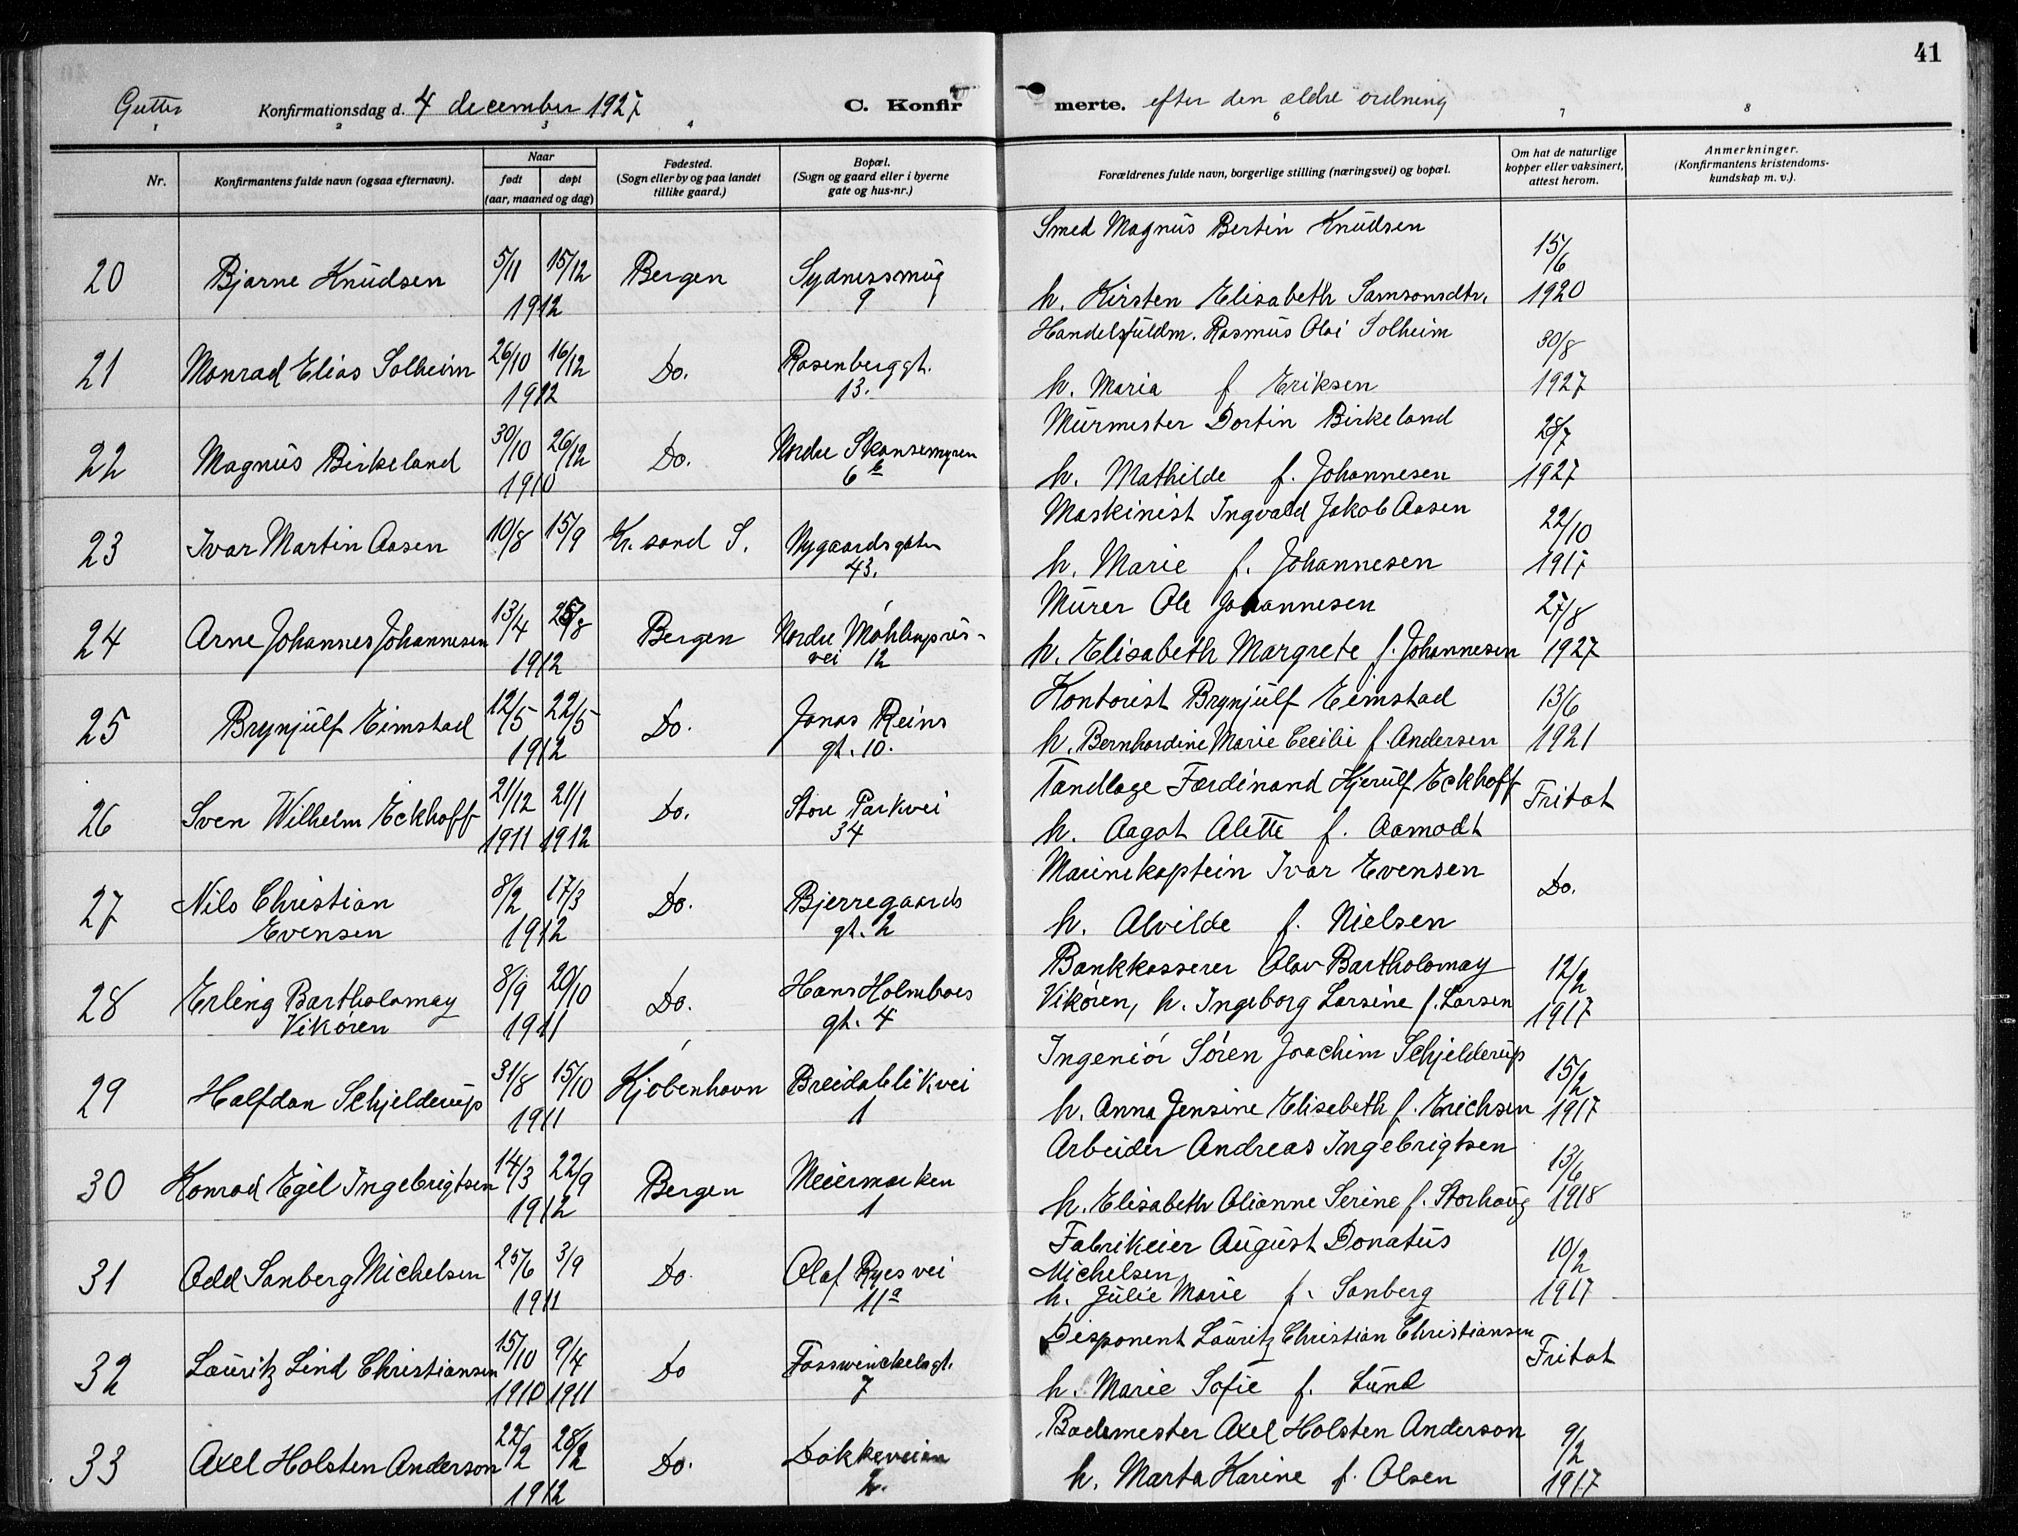 41
Gutter Konfirmationsdag d. 4 december 1927 C. Konfirmerte. efter den ældre ordning
1 2 3 4 6 7 8
Nr. Konfirmantens fulde navn (ogsaa efternavn). Naar født døpt (aar, maaned og dag) Fødested. (Sogn eller by og paa landet tillike gaard.) Bopæl. (Sogn og gaard eller i byerne gate og hus-nr.) Forældrenes fulde navn, borgerlige stilling (næringsvei) og bopæl. Om hat de naturlige kopper eller vaksinert, attest herom. Anmerkninger. (Konfirmantens kristendoms-kundskap m. v.).
Smed Magnus Bertin Knudsen
20 Bjarne Knudsen 5/11 15/12 Bergen Sydnessmug 15/6
1912 9 h. Kirsten Elisabeth Samsonsdtr. 1920
Handelsfuldm. Rasmus Olai Solheim
21 Monrad Elias Solheim 26/10 16/12 Do. Rosenberggt. 30/8
1912 13. h. Maria f Eriksen 1927
Murmester Dortin Birkeland
22 Magnus Birkeland 30/10 26/12 Do. Nordre Skansemyren 28/7
1910 6 b h. Mathilde f. Johannesen 1927
Maskinist Ingvald Jakob Aasen
23 Ivar Martin Aasen 10/8 15/9 Kr. sand S. Nygaardsgaten 22/10
43. h. Marie f. Johannesen 1917
Murer Ole Johannesen
24 Arne Johannes Johannesen 13/4 25/8 Bergen Nordre Møhlenpris- 27/8
1912 vei 12 h. Elisabeth Margrete f. Johannesen 1927
Kontorist Brynjulf Eimstad
25 Brynjulf Eimstad 12/5 22/5 Do. Jonas Reins 13/6
1912 gt. 10. h. Bernhardine Marie Cecilie f. Andersen 1921
Tandlæge Ferdinand Kjerulf Eckhoff
26 Sven Wilhelm Eckhoff 21/12 21/1 Do. Store Parkvei Fritat
1911 1912 34 h. Aagot Alette f. Aamodt
Marinekaptein Ivar Evensen
27 Nils Christian 8/2 17/3 Do. Bjerregaards Do.
Evensen 1912 gt. 2 h. Alvilde f. Nielsen
Bankkasserer Olav Bartholomay
28 Erling Bartholomay 8/9 20/10 Do. Hans Holmboes 12/2
Vikøren 1911 gt. 4 Vikøren, h. Ingeborg Larsine f. Larsen 1917
Ingeniör Sören Joachim Schjelderup
29 Halfdan Schjelderup 31/8 15/10 Kjøbenhavn Breidablikvei 15/2
1911 1 h. Anna Jensine Elisabeth f. Erichsen 1917
Arbeider Andreas Ingebrigtsen
30 Konrad Egil Ingebrigtsen 14/3 22/9 Bergen Meiermarken 13/6
1912 1 h. Elisabeth Olianne Serine f. Storhaug 1918
Fabrikeier August Donatus
31 Odd Sanberg Michelsen 25/6 3/9 Do. Olaf Ryes vei 10/2
Michelsen,
1911 11a h. Julie Marie f. Sanberg 1917
Disponent Lauritz Christian Christiansen
32 Lauritz Lind Christiansen 15/10 9/4 Do Fosswinckelsgt. Fritat
1910 1911 7 h. Marie Sofie f. Lund
Bademester Axel Holsten Anderson
33 Axel Holsten Anderson 22/2 28/2 Do. Dokkeveien 9/2
1912 2. h. Marta Karine f. Olsen 1917